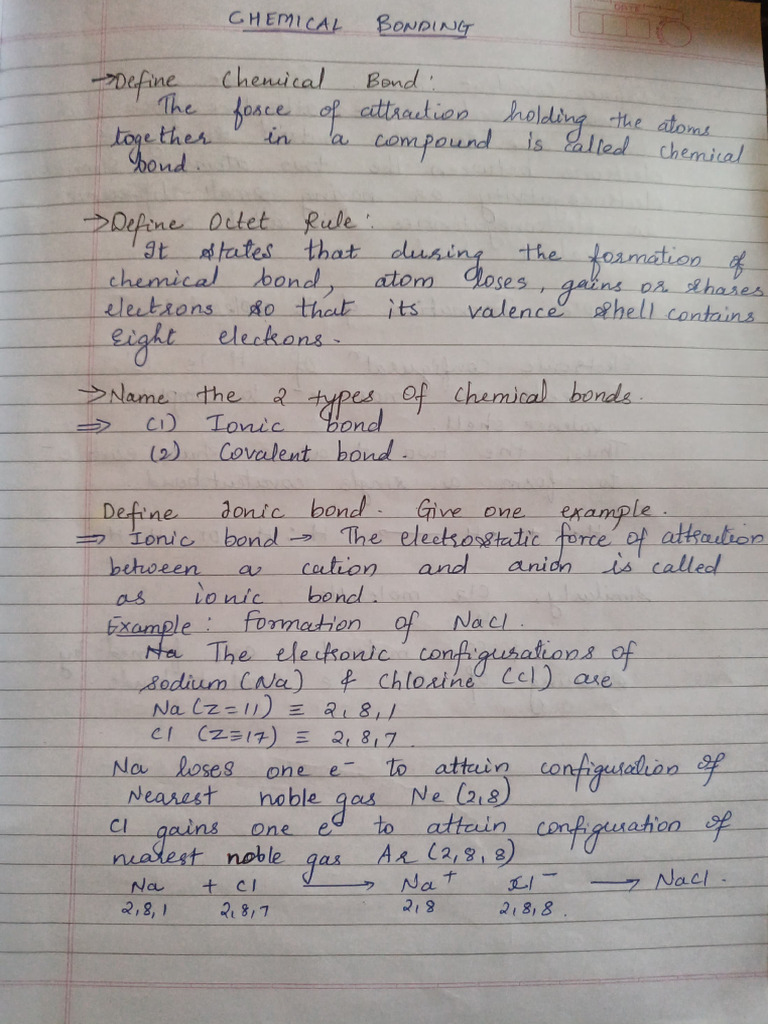 DATE
CHEMICAL BONDING
→Define Chemical Bond:
The force of attraction holding the atoms
together in a compound is called chemical
bond.
→Define Octet Rule:
It states that during the formation of
chemical bond, atom loses, gains or shares
electrons so that its valence shell contains
Eight electrons.
→Name the 2 types of Chemical bonds.
⇒ (1) Ionic bond
(2) Covalent bond.
Define Ionic bond. Give one example.
⇒ Ionic bond → The electrostatic force of attraction
between a cation and anion is called
as ionic bond.
Example: Formation of NaCl.
Na The electronic configurations of
sodium (Na) & Chlorine (Cl) are
Na (Z=11) ≡ 2,8,1
Cl (Z≡17) ≡ 2,8,7
Na loses one e⁻ to attain configuration of
Nearest noble gas Ne (2,8)
Cl gains one e⁻ to attain configuration of
nearest noble gas Ar (2,8,8)
Na + Cl ⟶ Na⁺ Cl⁻ ⟶ NaCl.
2,8,1 2,8,7 2,8 2,8,8.